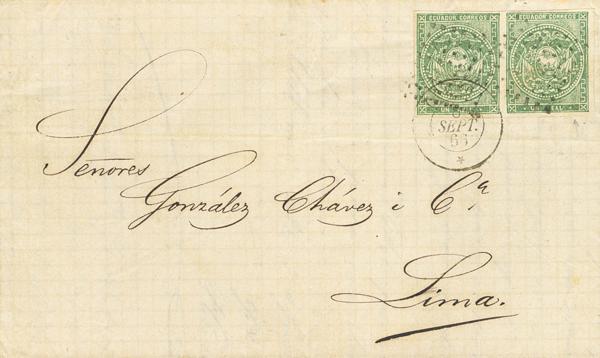 ECUADOR CORREOS ECUADOR CORREOS
UN REAL
SEPT.
Señores
González Chávez i Cª.
Lima.